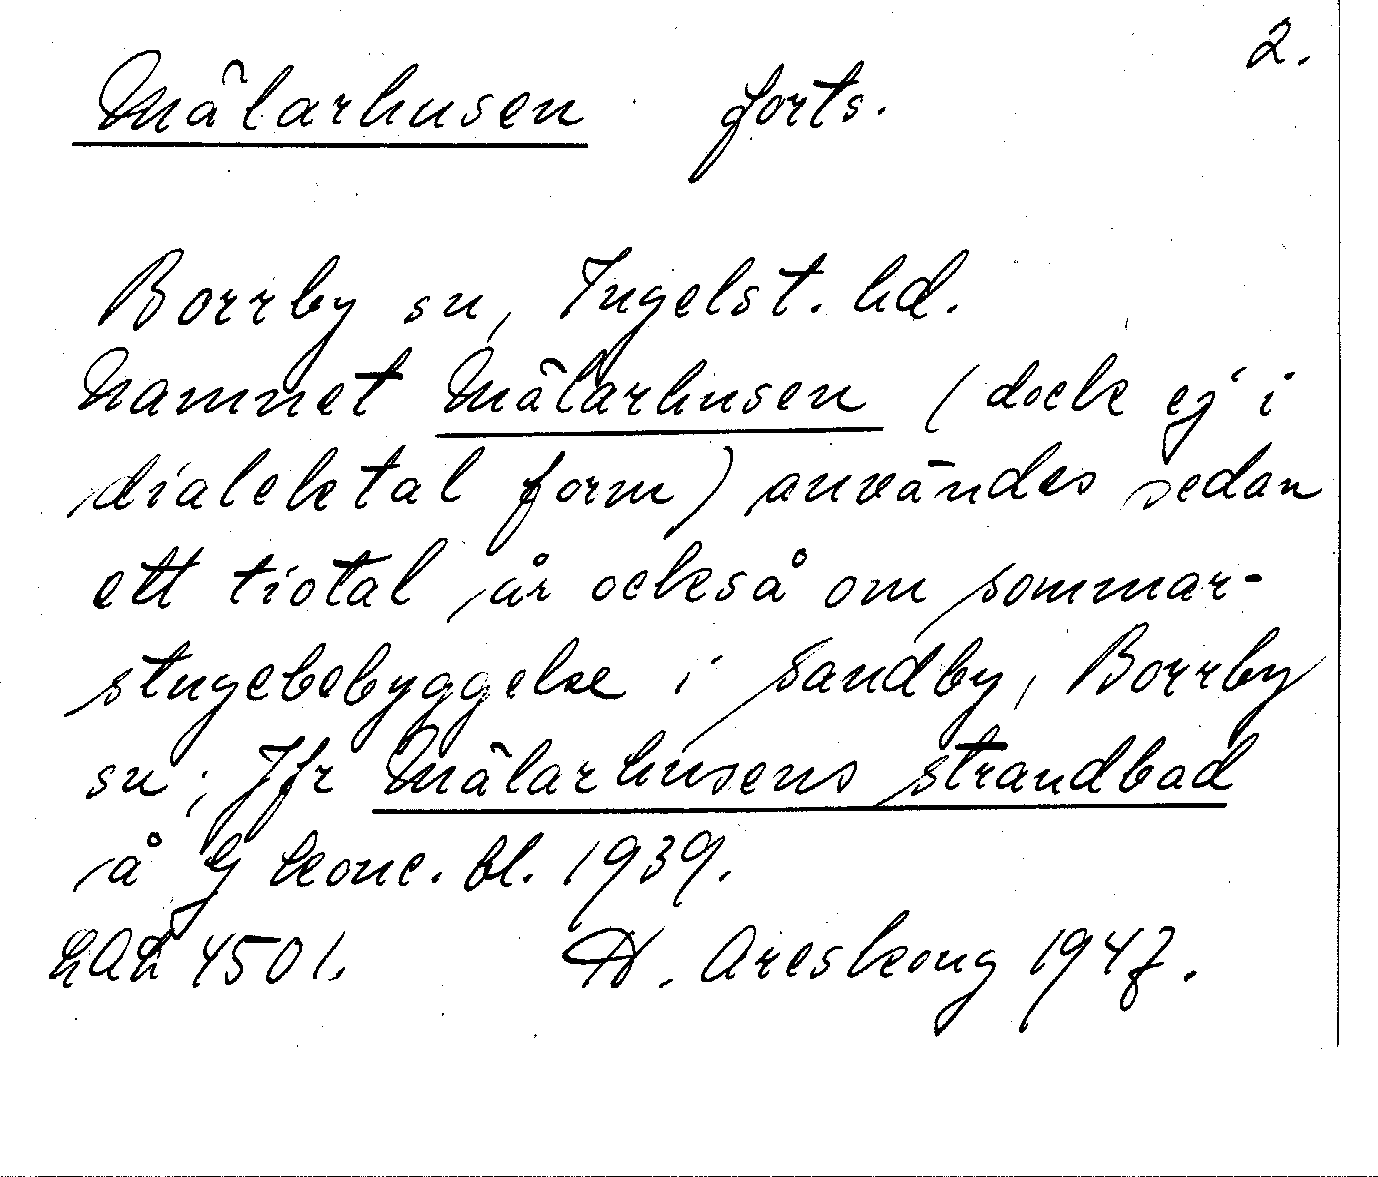 2.
Mälarhusen forts.
Borrby sn, Ingelst. hd.
Namnet Mälarhusen (dock ej i
dialektal form) användes sedan
ett tiotal år också om sommar-
stugebebyggelse i Sandby, Borrby
sn; Jfr Mälarhusens strandbad
å G konc. bl. 1939.
LAL 4501. H. Areskoug 1947.